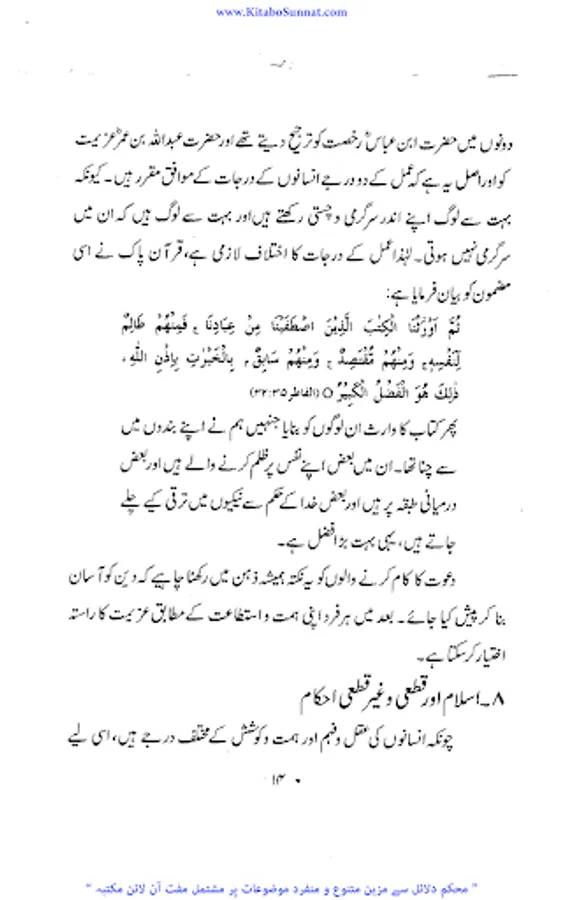 www.KitaboSunnat.com
دونوں میں حضرت ابن عباسؓ رخصت کو ترجیح دیتے تھے اور حضرت عبداللہ بن عمرؓ عزیمت
کو اور اصل یہ ہے کہ عمل کے دو درجے انسانوں کے درجات کے موافق مقرر ہیں۔ کیونکہ
بہت سے لوگ اپنے اندر سرگرمی و چستی رکھتے ہیں اور بہت سے لوگ ہیں کہ ان میں
سرگرمی نہیں ہوتی۔ لہٰذا عمل کے درجات کا اختلاف لازمی ہے، قرآن پاک نے اسی
مضمون کو بیان فرمایا ہے:
ثُمَّ اَوْرَثْنَا الْكِتٰبَ الَّذِيْنَ اصْطَفَيْنَا مِنْ عِبَادِنَا ۚ فَمِنْهُمْ ظَالِمٌ
لِّنَفْسِهٖ ۚ وَمِنْهُمْ مُّقْتَصِدٌ ۚ وَمِنْهُمْ سَابِقٌۢ بِالْخَيْرٰتِ بِاِذْنِ اللّٰهِ ،
ذٰلِكَ هُوَ الْفَضْلُ الْكَبِيْرُ ○ (الفاطر ۳۲:۳۵)
پھر کتاب کا وارث ان لوگوں کو بنایا جنہیں ہم نے اپنے بندوں میں
سے چنا تھا۔ ان میں بعض اپنے نفس پر ظلم کرنے والے ہیں اور بعض
درمیانی طبقہ پر ہیں اور بعض خدا کے حکم سے نیکیوں میں ترقی کیے چلے
جاتے ہیں، یہی بہت بڑا فضل ہے۔
دعوت کا کام کرنے والوں کو یہ نکتہ ہمیشہ ذہن میں رکھنا چاہیے کہ دین کو آسان
بنا کر پیش کیا جائے۔ بعد میں ہر فرد اپنی ہمت و استطاعت کے مطابق عزیمت کا راستہ
اختیار کر سکتا ہے۔
۸۔ اسلام اور قطعی و غیر قطعی احکام
چونکہ انسانوں کی عقل و فہم اور ہمت و کوشش کے مختلف درجے ہیں، اسی لیے
۱۴
" محکم دلائل سے مزین متنوع و منفرد موضوعات پر مشتمل مفت آن لائن مکتبہ "